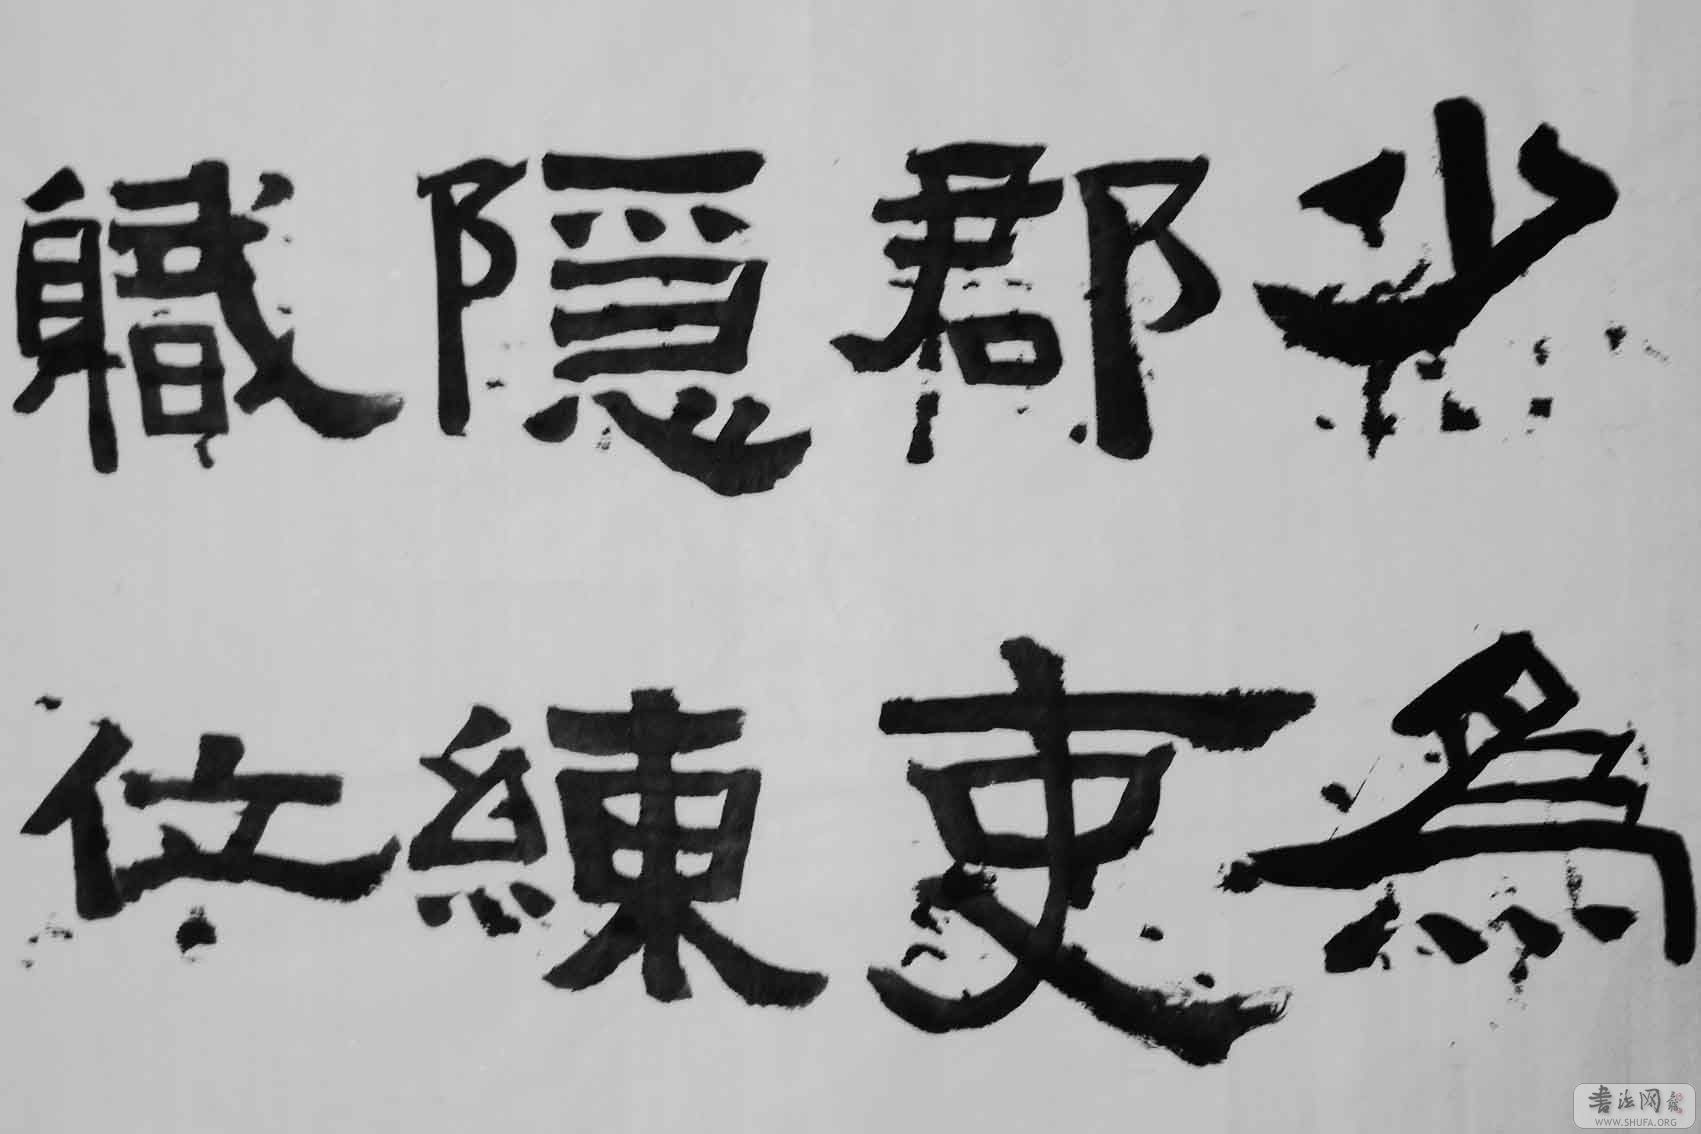 少為
郡吏
隱練
職位
書法网
WWW.SHUFA.ORG